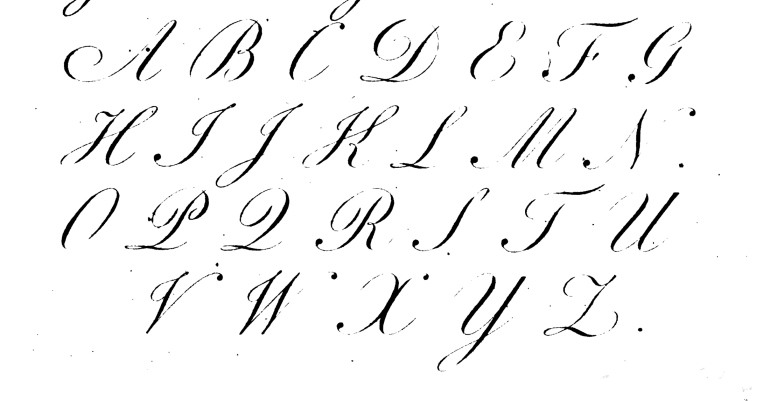 A B C D E F G
H I J K L M N.
O P Q R S T U
V W X Y Z.